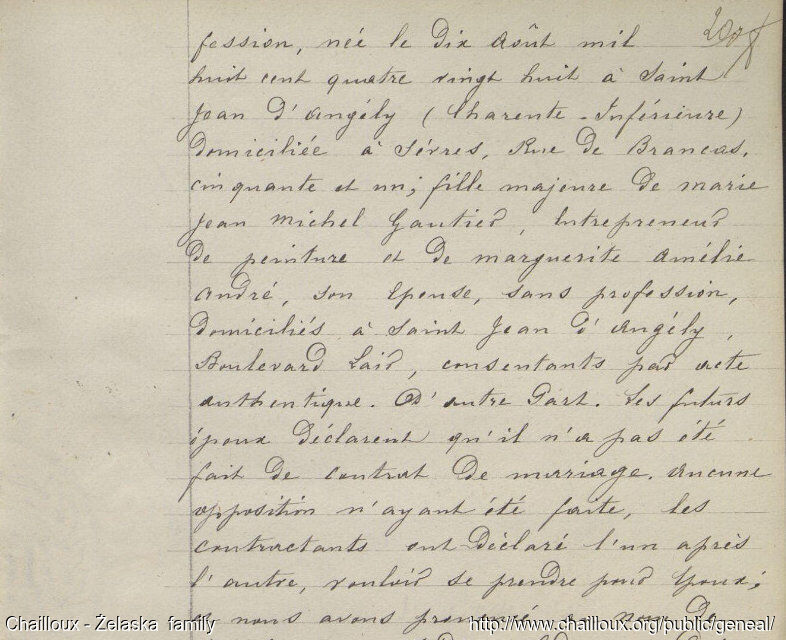 fession, née le Dix Août mil
huit cent quatre vingt huit à Saint
Jean D'Angély (Charente-Inférieure)
domiciliée à Sèvres, Rue De Brancas,
cinquante et un; fille majeure de marie
Jean Michel Gautier, Entrepreneur
de peinture et de marguerite Amélie
André, son Epouse, sans profession,
domiciliés à Saint Jean d'Angély,
Boulevard Lair, consentants par acte
authentique. D'autre Part. Les futurs
époux Déclarent qu'il n'a pas été
fait de contrat De mariage. Aucune
opposition n'ayant été faite, les
contractants ont Déclaré l'un après
l'autre, vouloir se prendre pour Epoux;
et nous avons prononcé au nom De
Chailloux - Želaska family
http://www.chailloux.org/public/geneal/